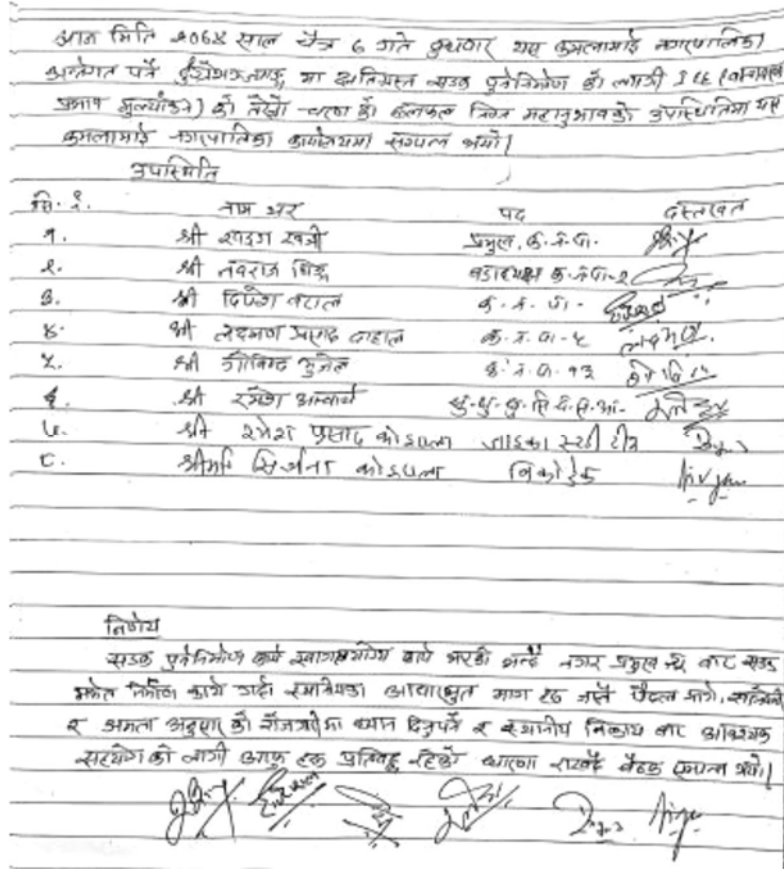 आज मिति २०७४ साल चैत्र ७ गते बुधवार यस कमलामाई नगरपालिका
अन्तर्गत पर्ने मा क्षतिग्रस्त सडक पुर्ननिर्माण को लागी IEE (वातावरण
प्रभाव मुल्यांकन) को तेस्रो चरण को छलफल निम्न महानुभावको उपस्थितिमा यस
कमलामाई नगरपालिका कार्यालयमा सम्पन्न भयो।
उपस्थिति
सि. नं. नाम थर पद दस्तखत
१. श्री खड्ग खत्री प्रमुख, क.न.पा.
२. श्री नवराज वडाध्यक्ष क.न.पा-२
३. श्री दिपेश क.न.पा.
४. श्री लक्ष्मण प्रसाद दाहाल क.न.पा-५ लक्ष्मण
५. श्री गोविन्द भुजेल क.न.पा. १३
६. श्री रमेश आचार्य
७. श्री रमेश प्रसाद कोइराला जाइका स्टडी टीम
८. श्रीमति सिर्जना कोइराला
निर्णय
सडक पुर्ननिर्माण कार्य स्वागतयोग्य कार्य भएको भन्दै नगर प्रमुख ज्यू बाट सडक
निर्माण कार्य गर्दा स्थानियका आधारभुत माग हरु जस्तै पैदल मार्ग,
र क्षमता अनुसार को रोजगारीमा ध्यान दिनुपर्ने र स्थानीय निकाय बाट आवश्यक
सहयोग को लागी आफु हरु प्रतिबद्ध रहेको धारणा राख्दै बैठक सम्पन्न भयो।